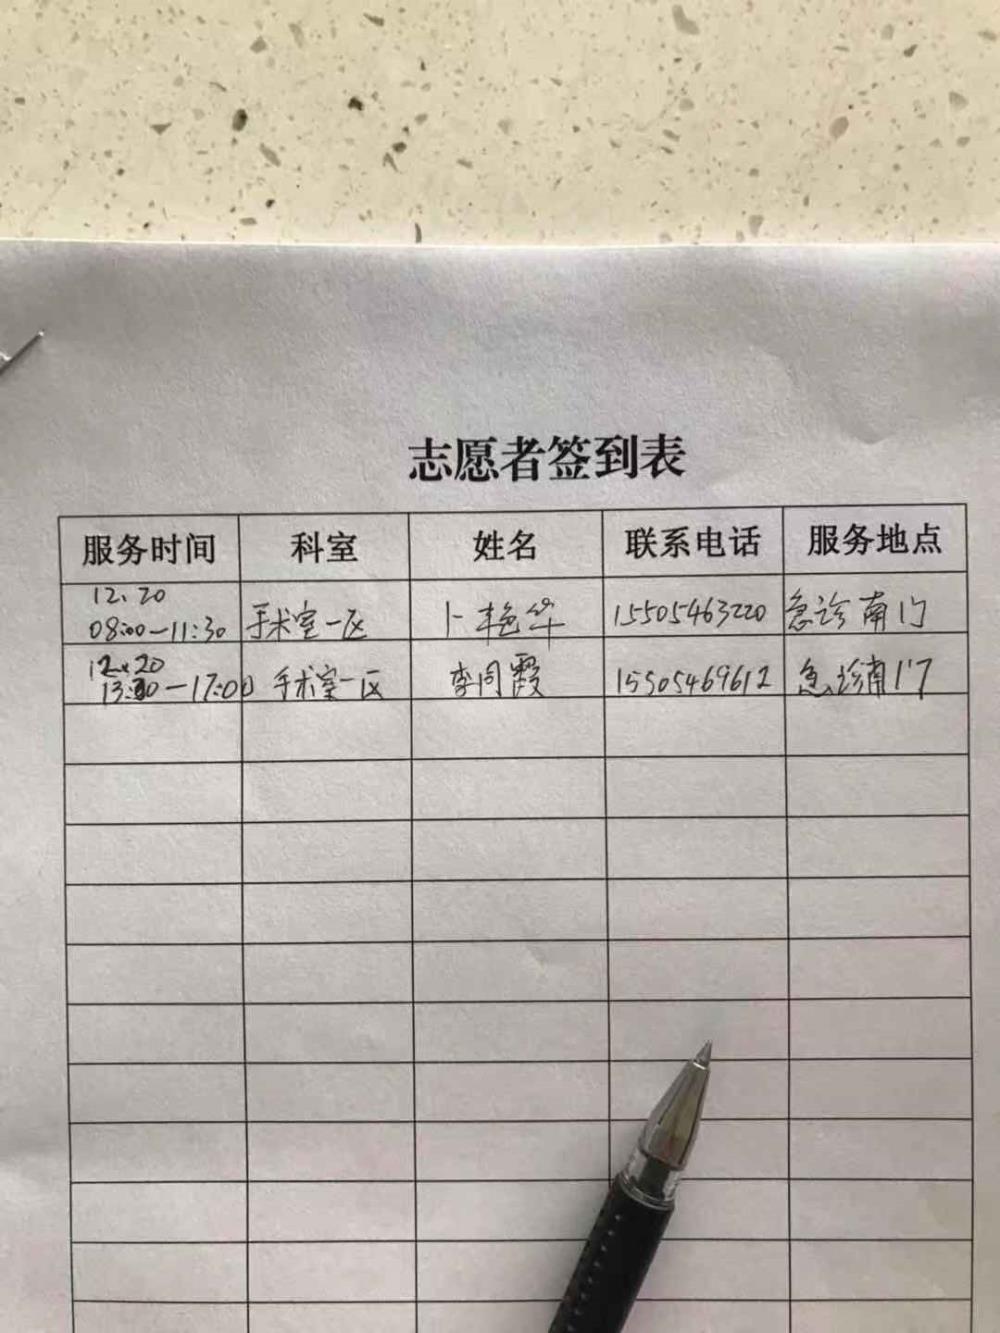 志愿者签到表
服务时间 科室 姓名 联系电话 服务地点
12.20
08:00-11:30 手术室一区 卜艳华 15505463220 急诊南门
12.20
13:30-17:00 手术室一区 李同霞 15505469612 急诊南门